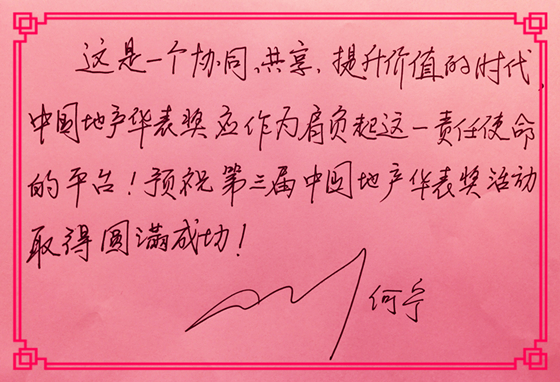 这是一个协同、共享、提升价值的时代,
中国地产华表奖应作为肩负起这一责任使命
的平台!预祝第三届中国地产华表奖活动
取得圆满成功!
何宁